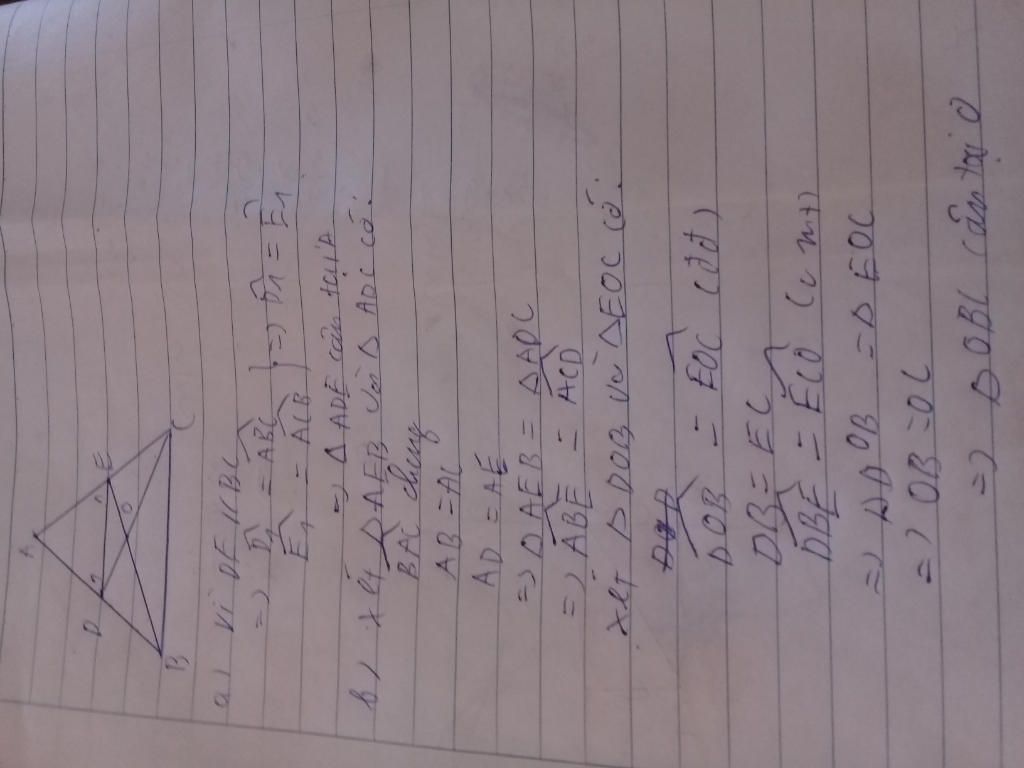 A
D
E
O
B
C
a) Vì DE // BC
=> D̂1 = ABC
Ê1 = ACB } => D̂1 = Ê1
=> Δ ADE cân tại A
b) Xét Δ AEB và Δ ADC có:
BAC chung
AB = AC
AD = AE
=> Δ AEB = Δ ADC
=> ABE = ACD
Xét Δ DOB và Δ EOC có:
DOB = EOC (đđ)
DB = EC
DBE = ECD (cmt)
=> Δ DOB = Δ EOC
=> OB = OC
=> Δ OBC cân tại O